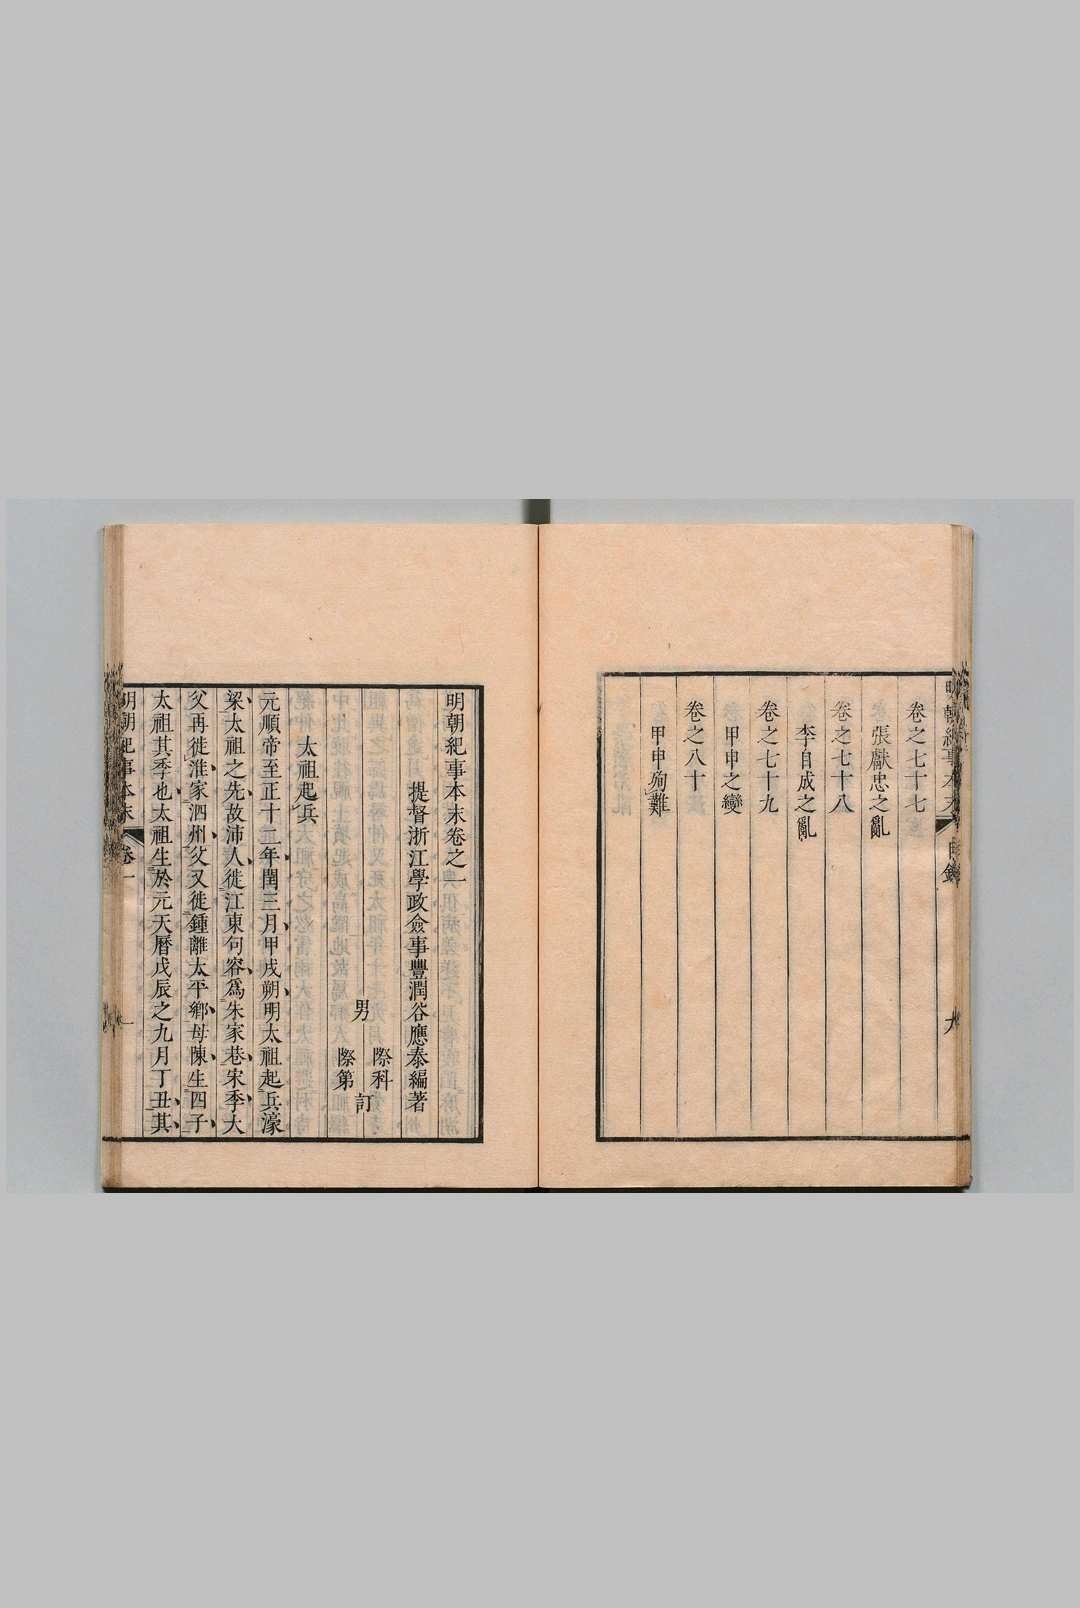 卷之七十七
張獻忠之亂
卷之七十八
李自成之亂
卷之七十九
甲申之變
卷之八十
甲申殉難
明朝紀事本末卷之一
提督浙江學政僉事豐潤谷應泰編著
男
際科
際第
訂
太祖起兵
元順帝至正十二年閏三月甲戌朔明太祖起兵濠
梁太祖之先故沛人徙江東句容爲朱家巷宋季大
父再徙淮家泗州父又徙鍾離太平鄉母陳生四子
太祖其季也太祖生於元天曆戊辰之九月丁丑其
明朝紀事本末
卷一
一